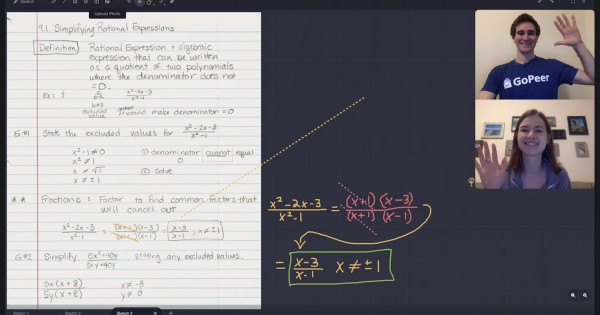 Sketch
Upload Photo
9.1 Simplifying Rational Expressions
Definition Rational Expression = algebraic
expression that can be written
as a quotient of two polynomials
where the denominator does not
= 0.
Ex: x²-2x-3 / x²-1
value would make denominator = 0
State the excluded values for x²-2x-3 / x²-1
x²-1 ≠ 0 ① denominator cannot equal
0
x² ≠ 1
x ≠ √1 ② solve
x ≠ ±1
** Fractions : Factor to find common factors that
will cancel out
x²-2x-3 / x²-1 = (x+1)(x-3) / (x+1)(x-1) = x-3 / x-1 , x ≠ ±1
Simplify 5x²+40x / 5xy+40y , stating any excluded values.
5x(x+8) / 5y(x+8) x ≠ -8
y ≠ 0
x²-2x-3 / x²-1 = (x+1)(x-3) / (x+1)(x-1)
= x-3 / x-1 x ≠ ±1
GoPeer
Sketch 1
Sketch 2
Sketch 3